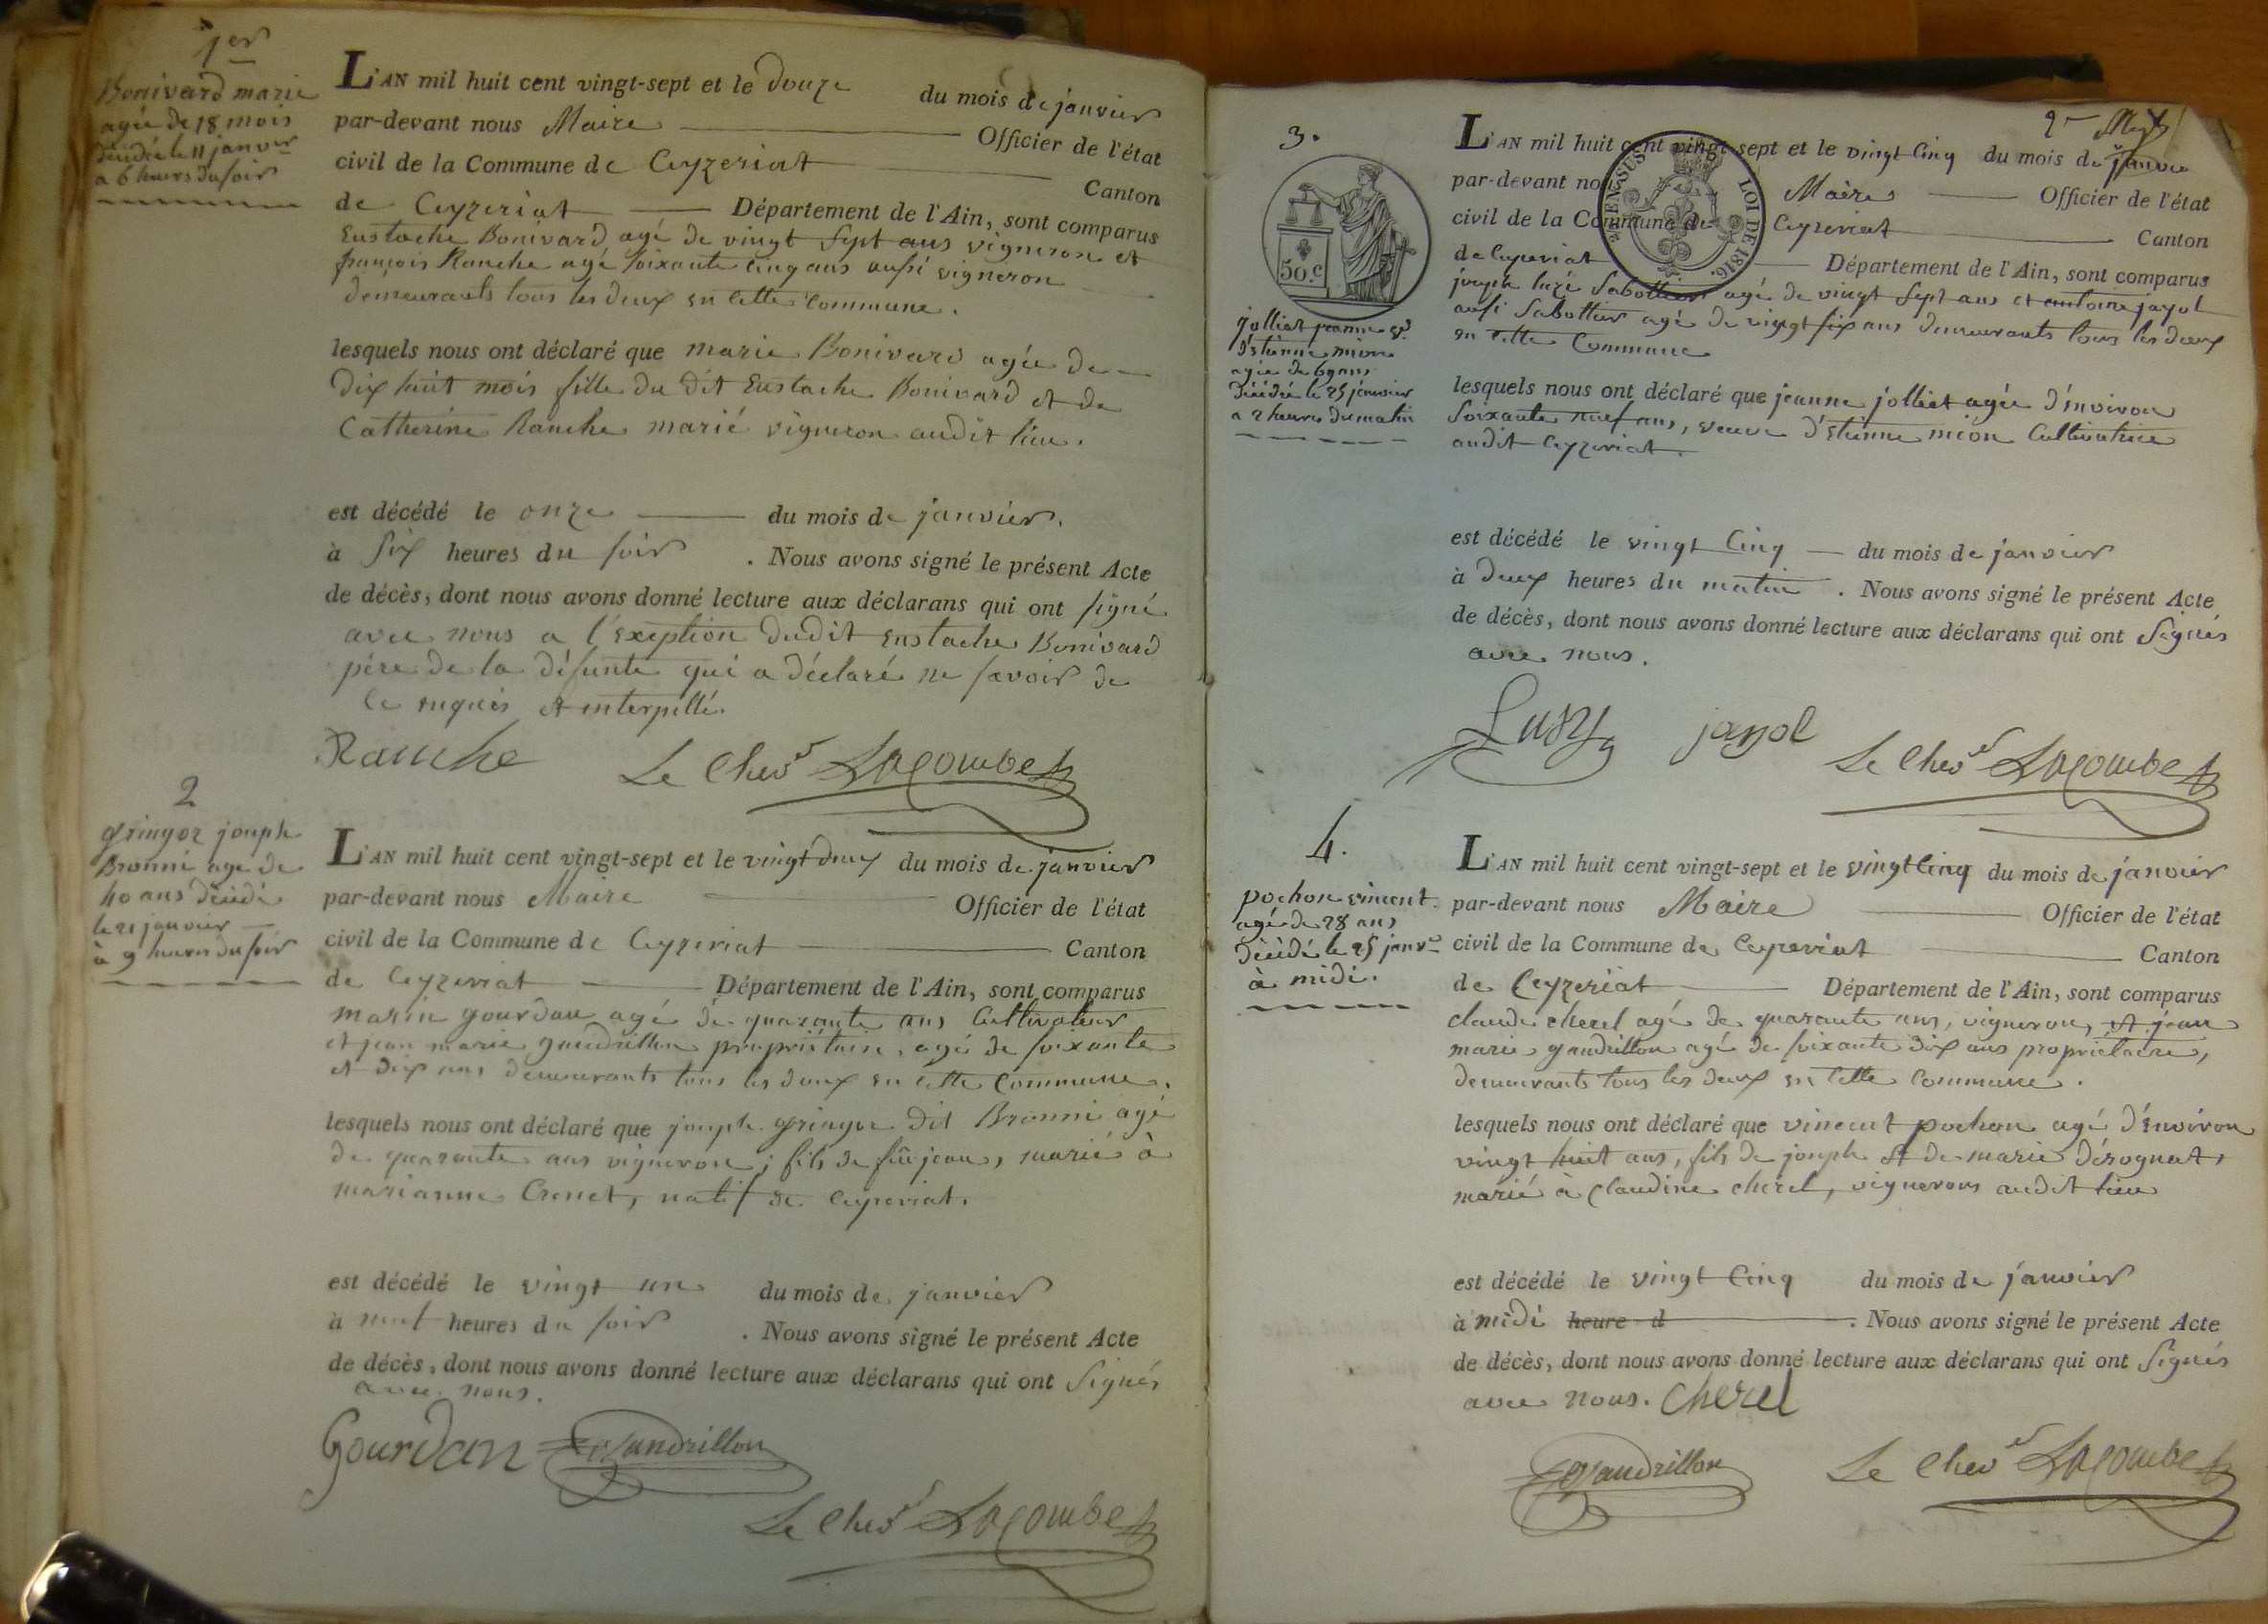 1er
Bonivard marie
agée de 18 mois
décédée le 11 janvier
a 6 heures du soir
L'AN mil huit cent vingt-sept et le douze du mois de janvier
par-devant nous Maire Officier de l'état
civil de la Commune de Ceyzeriat Canton
de Ceyzeriat Département de l'Ain, sont comparus
Eustache Bonivard agé de vingt sept ans vigneron et
françois Ranche agé soixante cinq ans aussi vigneron
demeurants tous les deux en cette commune.
lesquels nous ont déclaré que marie Bonivard agée de
dix huit mois fille du dit Eustache Bonivard et de
Catherine Ranche marié vigneron audit lieu.
est décédé le onze du mois de janvier.
à six heures du soir . Nous avons signé le présent Acte
de décès, dont nous avons donné lecture aux déclarans qui ont signé
avec nous a l'exeption dudit Eustache Bonivard
père de la défunte qui a déclaré ne savoir de
ce enquis et interpellé.
Ranche Le Chevr Lacombe
2
gringoz joseph
Bronni agé de
40 ans décédé
le 21 janvier
à 9 heures du soir
L'AN mil huit cent vingt-sept et le vingt deux du mois de janvier
par-devant nous Maire Officier de l'état
civil de la Commune de Ceyzeriat Canton
de Ceyzeriat Département de l'Ain, sont comparus
marin gourdan agé de quarante ans Cultivateur
et jean marie gaudrillon propriétaire, agé de soixante
et dix ans demeurants tous les deux en cette Commune.
lesquels nous ont déclaré que joseph gringoz dit Bronni agé
de quarante ans vigneron, fils de feu jean, marié à
marianne Crenet, natif de Ceyzeriat.
est décédé le vingt un du mois de janvier
à neuf heures du soir . Nous avons signé le présent Acte
de décès, dont nous avons donné lecture aux déclarans qui ont Signés
avec nous.
Gourdan Gaudrillon
Le Chevr Lacombe
3.
50.c
jolliet jeanne ve
d'étienne mion
agée de 69 ans
décédée le 25 janvier
a 2 heures du matin
2e
L'AN mil huit cent vingt-sept et le vingt cinq du mois de janvier
par-devant nous Maire Officier de l'état
civil de la Commune de Ceyzeriat Canton
LOI DE 1816.
de Ceyzeriat Département de l'Ain, sont comparus
joseph Sabottier agé de vingt sept ans et antoine jayol
aussi Sabottier agé de vingt six ans demeurants tous les deux
en cette Commune
lesquels nous ont déclaré que jeanne jolliet agée d'environ
soixante neuf ans, veuve d'étienne mion Cultivatrice
audit Ceyzeriat.
est décédé le vingt cinq du mois de janvier
à deux heures du matin . Nous avons signé le présent Acte
de décès, dont nous avons donné lecture aux déclarans qui ont Signés
avec nous.
jayol Le Chevr Lacombe
4.
pochon vincent
agé de 28 ans
décédé le 25 janvr
à midi.
L'AN mil huit cent vingt-sept et le vingt cinq du mois de janvier
par-devant nous Maire Officier de l'état
civil de la Commune de Ceyzeriat Canton
de Ceyzeriat Département de l'Ain, sont comparus
claude cherel agé de quarante ans, vigneron, et jean
marie gaudrillon agé de soixante dix ans propriétaire,
demeurants tous les deux en cette Commune.
lesquels nous ont déclaré que vincent pochon agé d'environ
vingt huit ans, fils de joseph et de marie dérognat,
marié à Claudine cherel, vignerons audit lieu
est décédé le vingt cinq du mois de janvier
à midi heure d . Nous avons signé le présent Acte
de décès, dont nous avons donné lecture aux déclarans qui ont Signés
avec nous. Cherel
Gaudrillon Le Chevr Lacombe